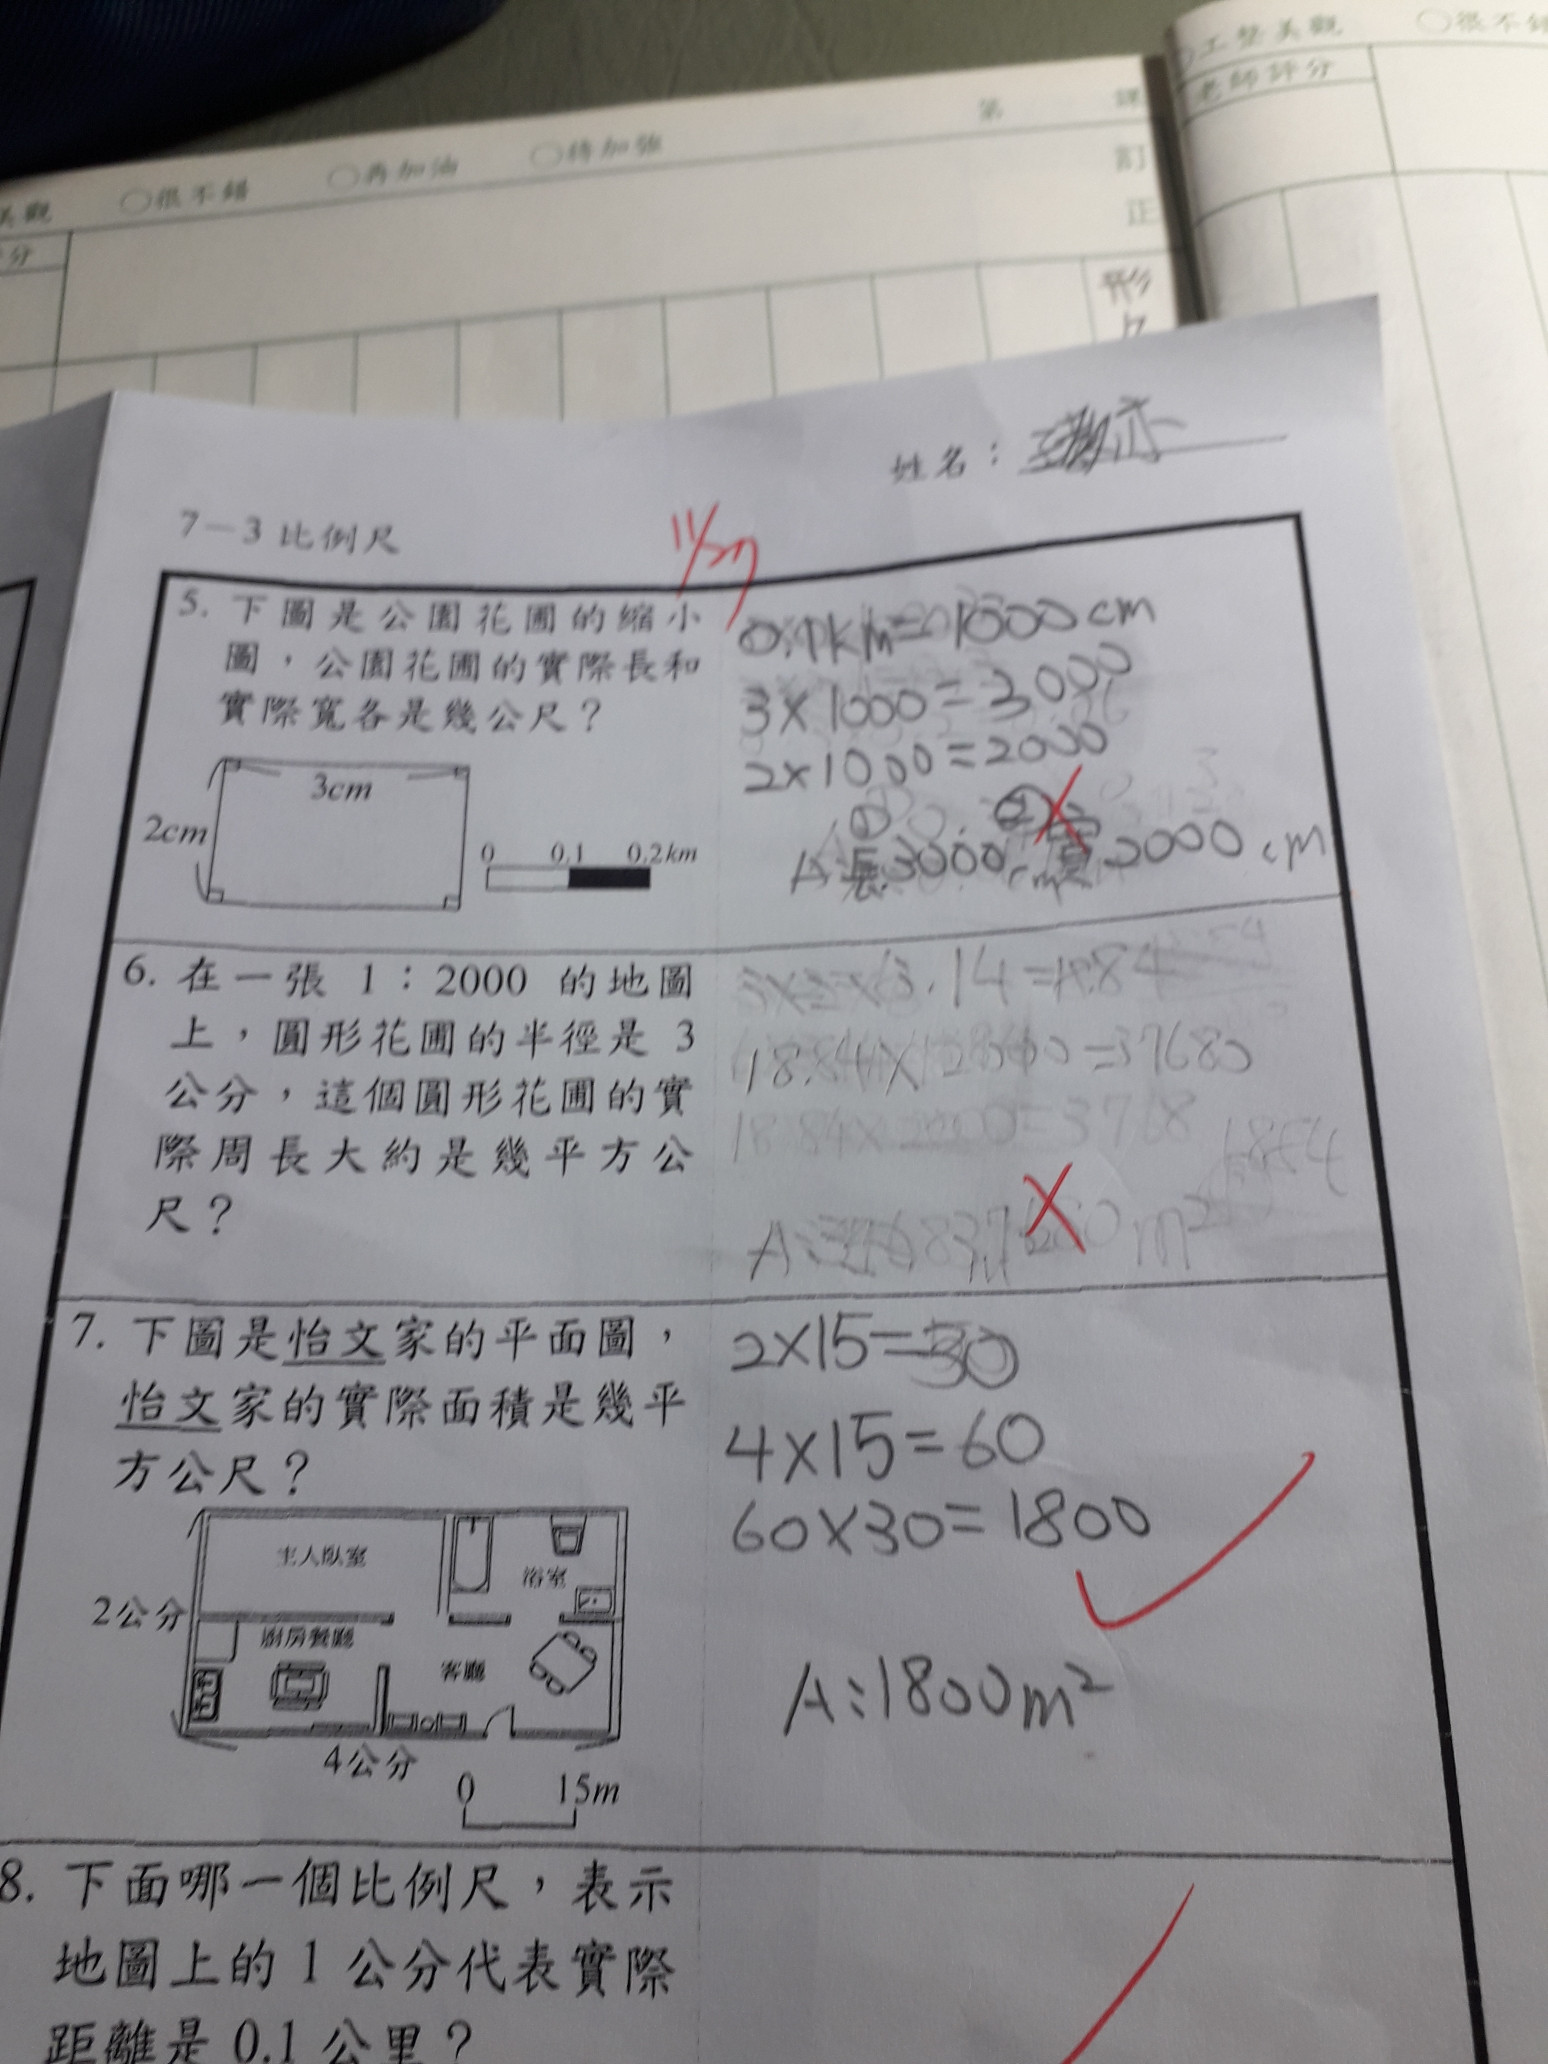 工整美觀 ○很不錯
老師評分
美觀 ○很不錯 ○再加油 ○待加強 第 課
訂
正
分
形
姓名：
7－3 比例尺 11/27
5. 下圖是公園花圃的縮小
圖，公園花圃的實際長和
實際寬各是幾公尺？
3cm
2cm
0 0.1 0.2km
0.1km=1000cm
3×1000=3000
2×1000=2000
A:長3000cm寬2000cm
6. 在一張 1：2000 的地圖
上，圓形花圃的半徑是 3
公分，這個圓形花圃的實
際周長大約是幾平方公
尺？
3×2×3.14=18.84
=37680
18.84× =3768
7. 下圖是怡文家的平面圖，
怡文家的實際面積是幾平
方公尺？
主人臥室
浴室
2公分
廚房餐廳
客廳
4公分
0 15m
2×15=30
4×15=60
60×30=1800
A:1800m²
8. 下面哪一個比例尺，表示
地圖上的 1 公分代表實際
距離是 0.1 公里？